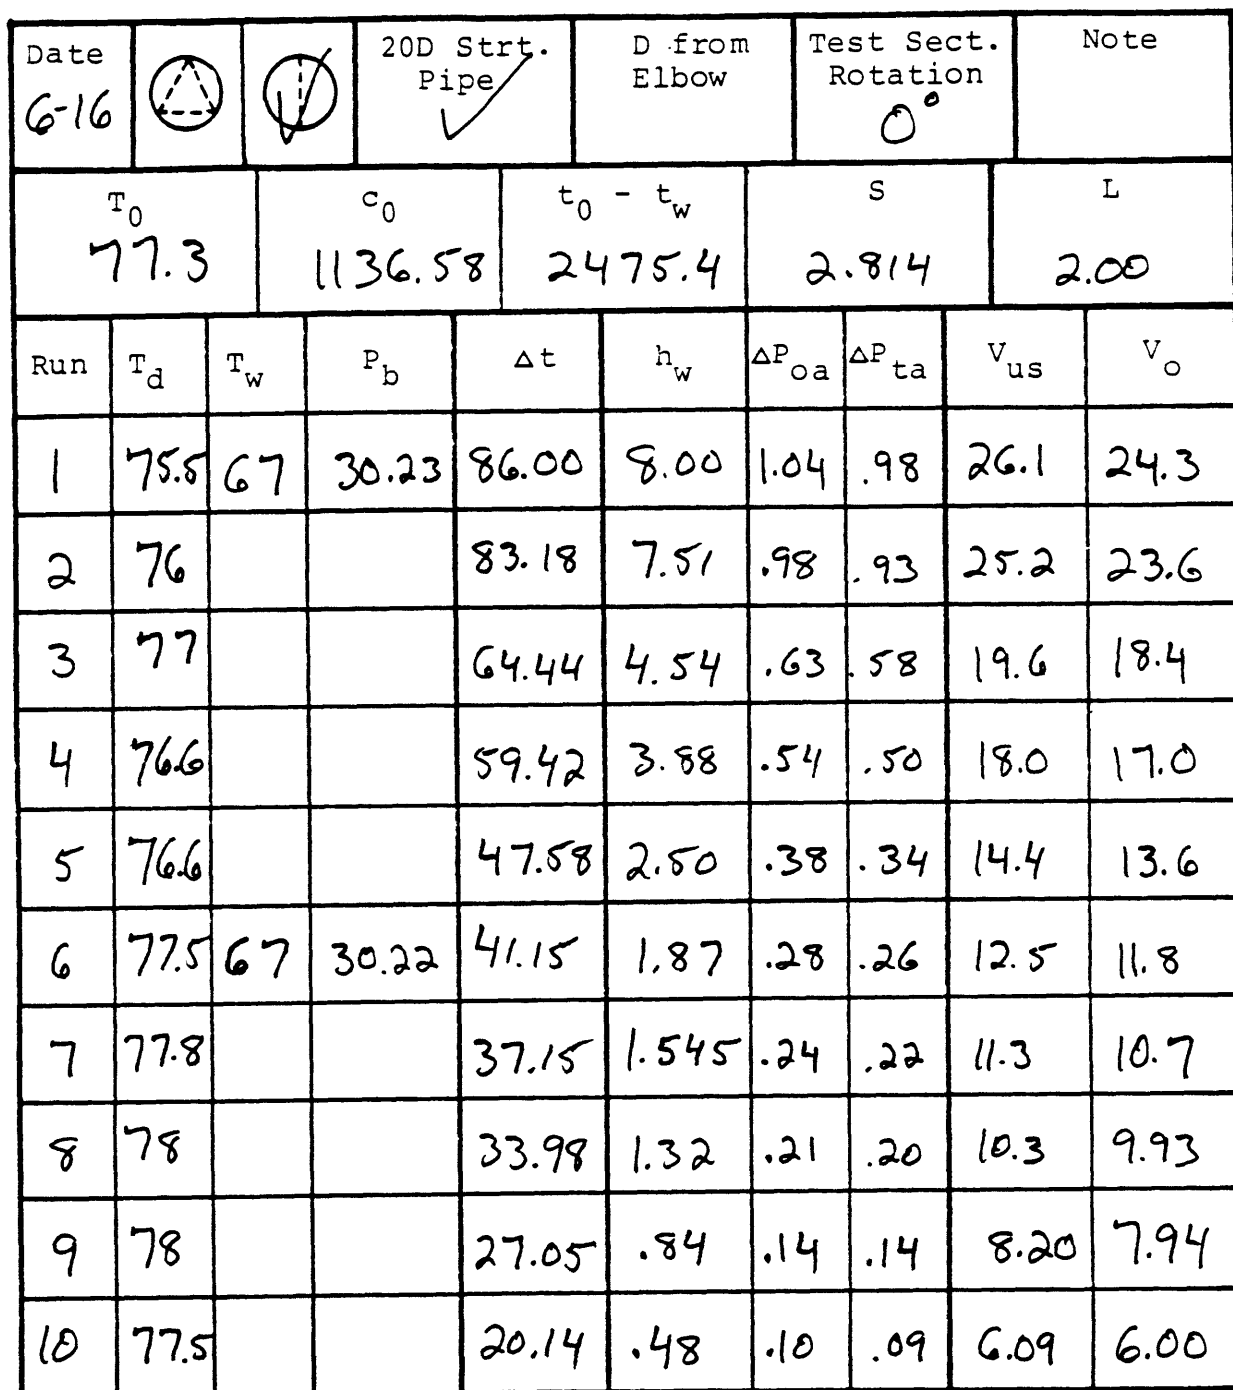 Date 20D Strt. D from Test Sect. Note
Pipe Elbow Rotation
6-16 ✓ ✓ 0°
T0 c0 t0 - tw S L
77.3 1136.58 2475.4 2.814 2.00
Run Td Tw Pb Δt hw ΔPoa ΔPta Vus Vo
1 75.5 67 30.23 86.00 8.00 1.04 .98 26.1 24.3
2 76 83.18 7.51 .98 .93 25.2 23.6
3 77 64.44 4.54 .63 .58 19.6 18.4
4 76.6 59.42 3.88 .54 .50 18.0 17.0
5 76.6 47.58 2.50 .38 .34 14.4 13.6
6 77.5 67 30.22 41.15 1.87 .28 .26 12.5 11.8
7 77.8 37.15 1.545 .24 .22 11.3 10.7
8 78 33.98 1.32 .21 .20 10.3 9.93
9 78 27.05 .84 .14 .14 8.20 7.94
10 77.5 20.14 .48 .10 .09 6.09 6.00